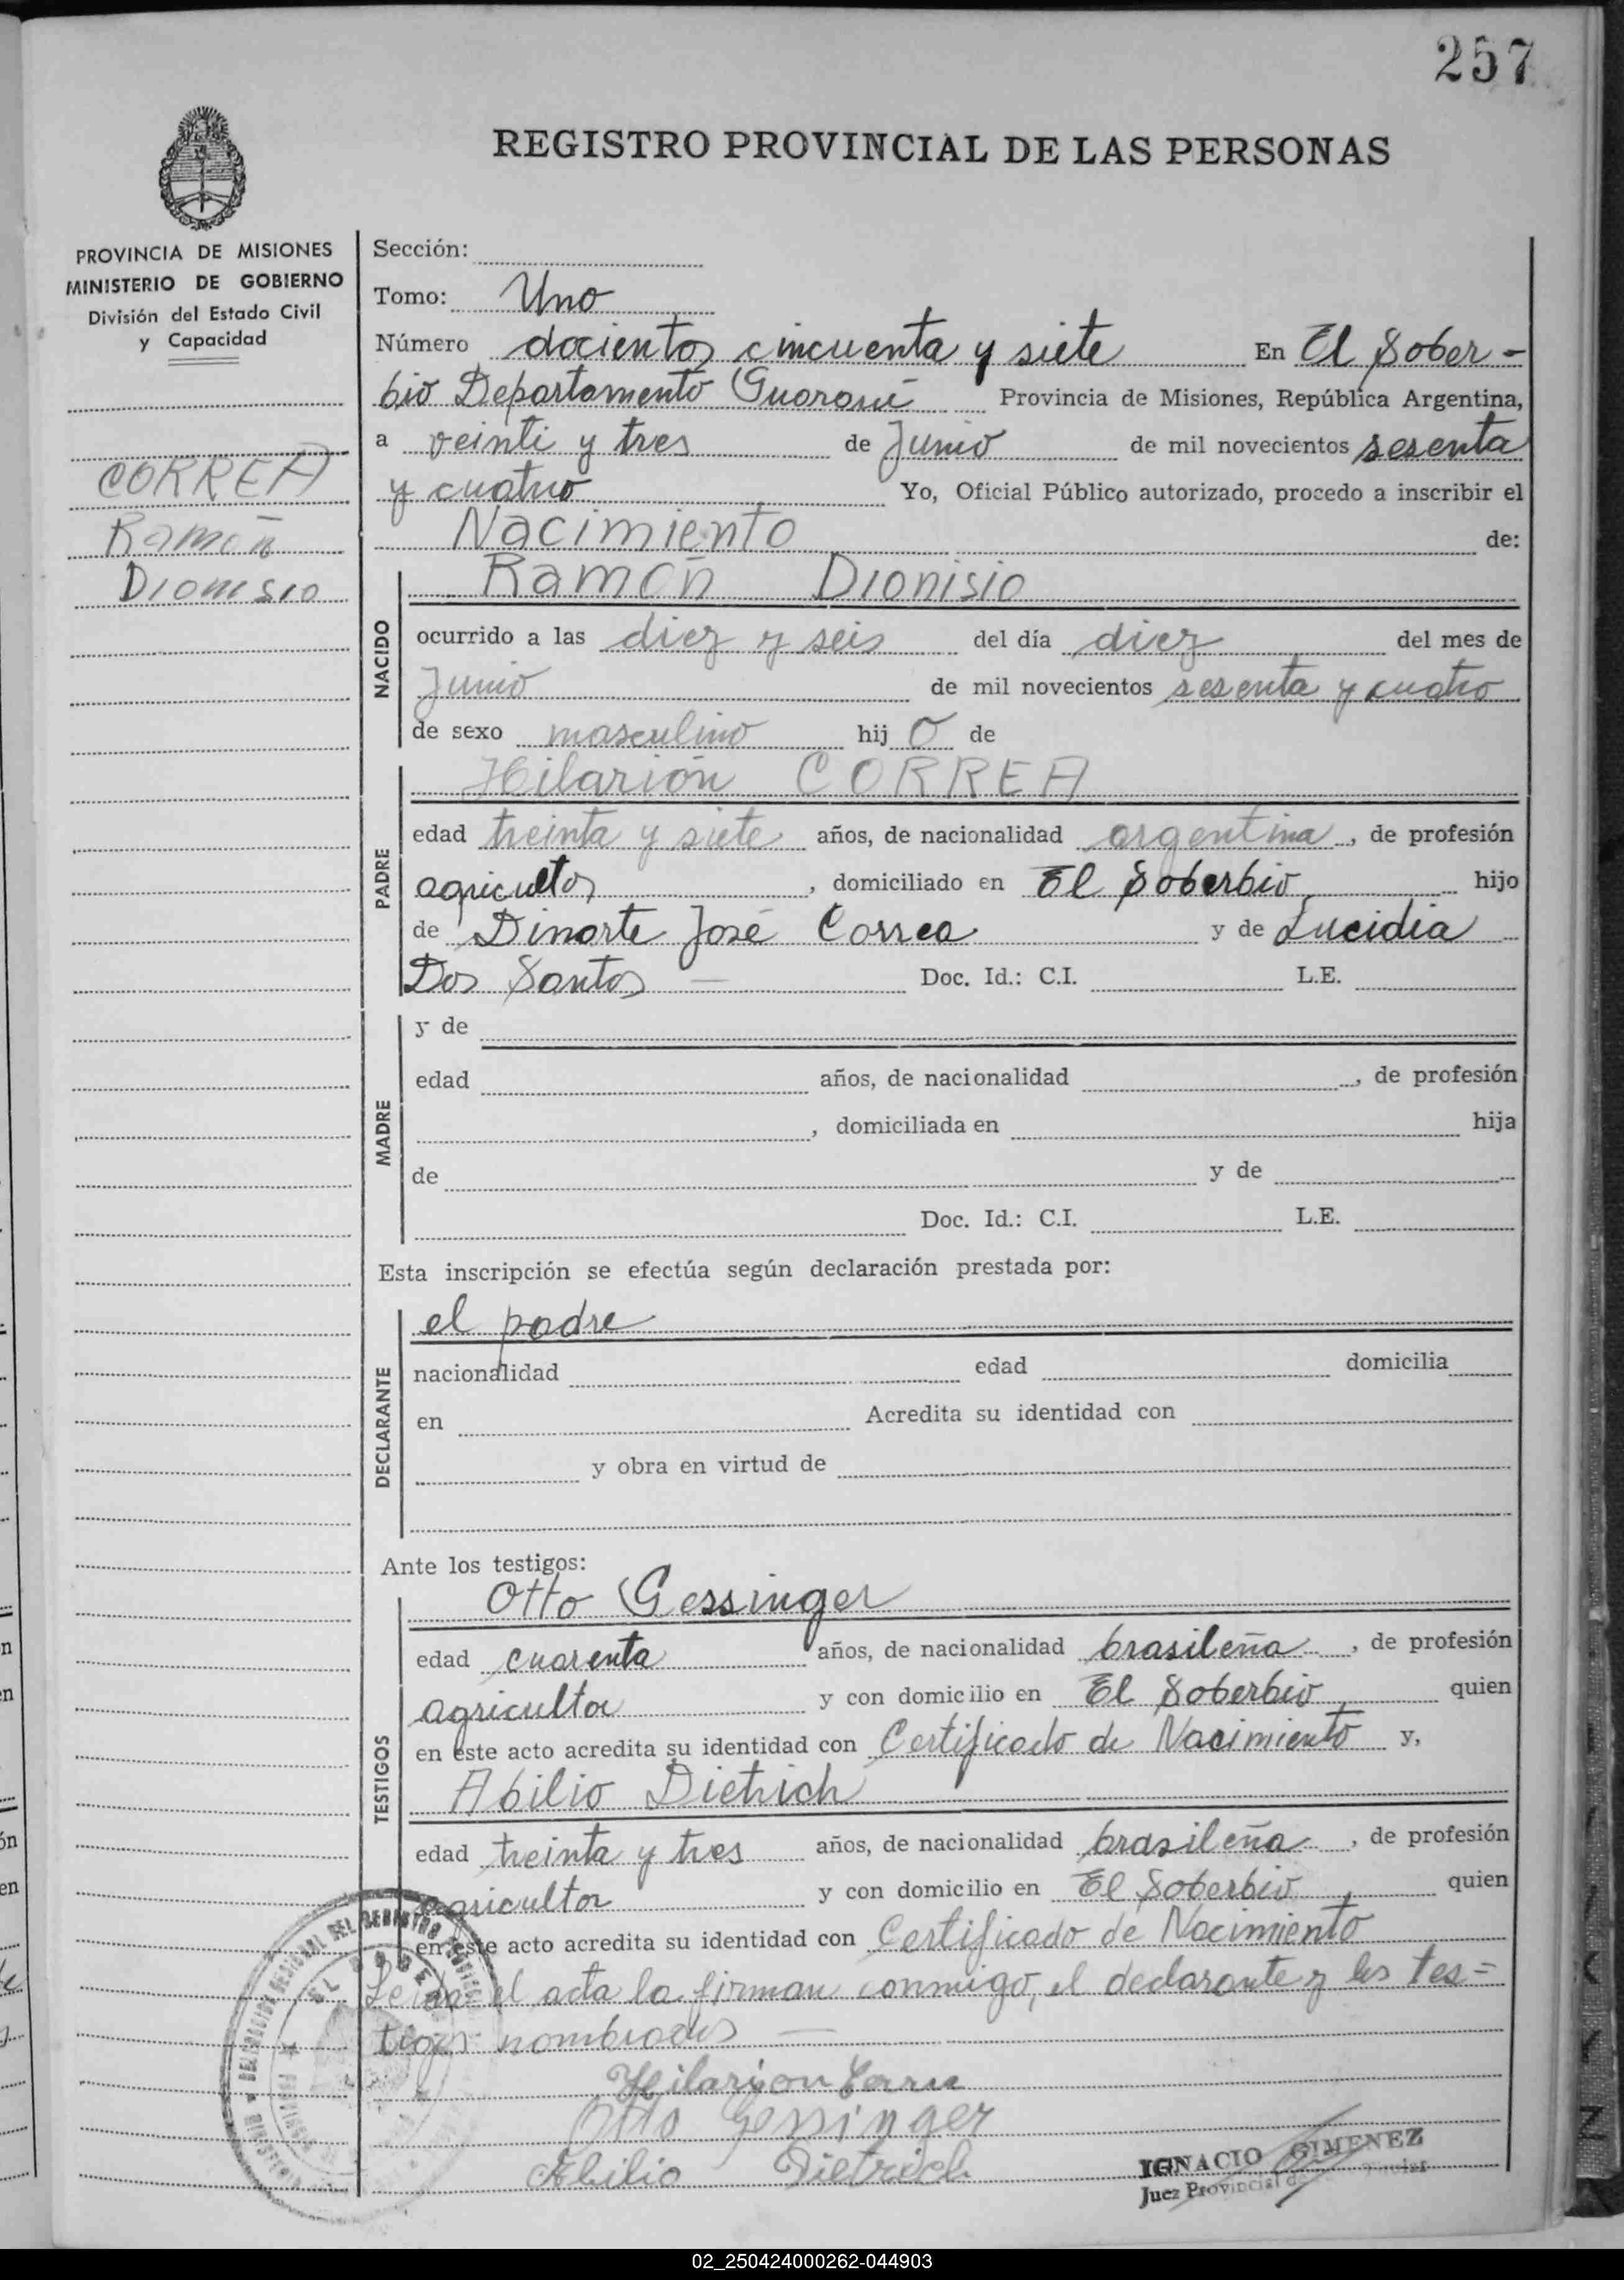 257
REGISTRO PROVINCIAL DE LAS PERSONAS
PROVINCIA DE MISIONES
MINISTERIO DE GOBIERNO
División del Estado Civil
y Capacidad
CORREA
Ramón
Dionisio
Sección:
Tomo: Uno
Número docientos cincuenta y siete En El Sober-
bio Departamento Guaraní Provincia de Misiones, República Argentina,
a veinti y tres de Junio de mil novecientos sesenta
y cuatro Yo, Oficial Público autorizado, procedo a inscribir el
Nacimiento de:
NACIDO
Ramón Dionisio
ocurrido a las diez y seis del día diez del mes de
Junio de mil novecientos sesenta y cuatro
de sexo masculino hij o de
PADRE
Hilarión CORREA
edad treinta y siete años, de nacionalidad argentina, de profesión
agricultor, domiciliado en El Soberbio hijo
de Dinarte José Correa y de Lucidia
Dos Santos — Doc. Id.: C.I. L.E.
MADRE
y de
edad años, de nacionalidad , de profesión
, domiciliada en hija
de y de
Doc. Id.: C.I. L.E.
Esta inscripción se efectúa según declaración prestada por:
DECLARANTE
el padre
nacionalidad edad domicilia
en Acredita su identidad con
y obra en virtud de
Ante los testigos:
TESTIGOS
Otto Gessinger
edad cuarenta años, de nacionalidad brasileña, de profesión
agricultor y con domicilio en El Soberbio, quien
en este acto acredita su identidad con Certificado de Nacimiento y,
Abilio Dietrich
edad treinta y tres años, de nacionalidad brasileña, de profesión
agricultor y con domicilio en El Soberbio, quien
en este acto acredita su identidad con Certificado de Nacimiento
Leida el acta la firman conmigo, el declarante y los tes=
tigos nombrados —
Hilarion Correa
Otto Gessinger
Abilio Dietrich
IGNACIO GIMENEZ
Juez Provincial de
02_250424000262-044903